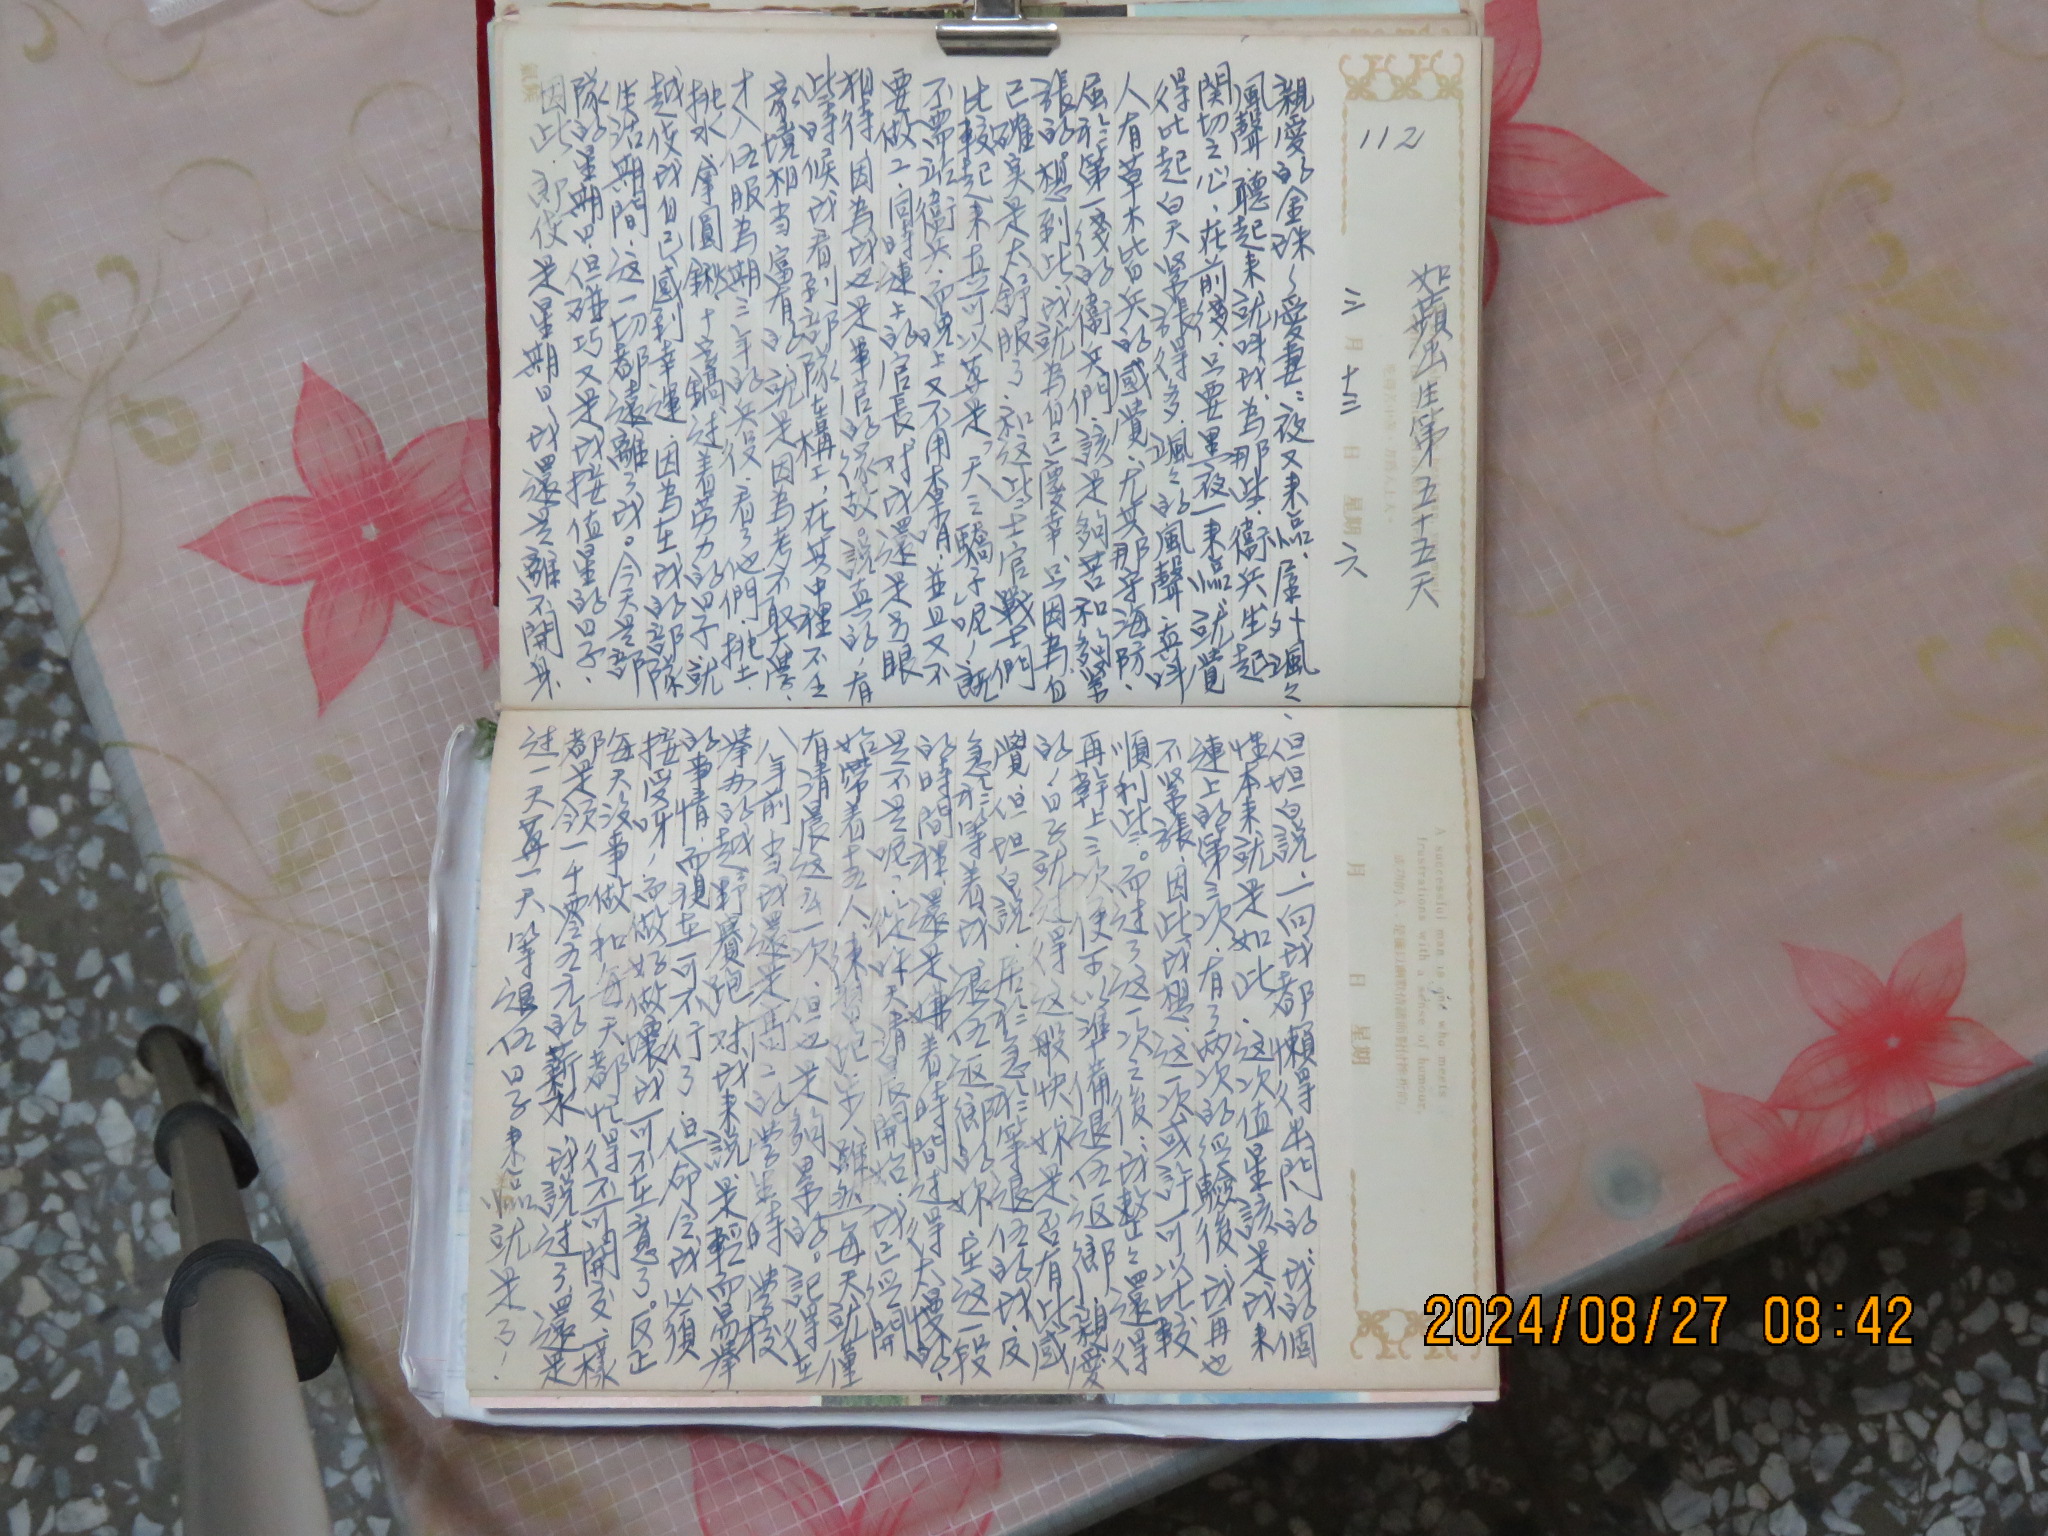 112
如蘋出生第五十五天
三月十三日 星期六
親愛的金珠～愛妻：夜又來臨，屋外颯々
風聲聽起來就叫我為那些衛兵生起
関切之心，在前线，只要黑夜一來臨，就覺
得比起白天緊張得多，颯々的風聲，真叫
人有草木皆兵的感覺，尤其那守海防，
屈於第一线的衛兵們，該是夠苦和夠緊
張的。想到此，我就為自己慶幸，只因為自
己確実是太舒服了，和這些士官戰士們
比較起來真可以算是"天之驕子"呢，既
不需站衛兵，而晚上又不用查哨，並且又不
要做工，同時連上的官長對我還是另眼
相待，因為我也是軍官的緣故。說真的，有
些時候我看到部隊在構工，在其中裡不乏
家境相當富有的，就是因為考不取大專，
才入伍服為期三年的兵役，看了他們挑土、
挑水、拿圓鍬、十字鎬，过着劳力的日子就
越使我自己感到幸運，因為在我的部隊
生活期間，這一切都遠離了我。今天是部
隊的星期日，但碰巧又是我接值星的日子，
因此，即使是星期日，我還是離不開身，
但坦白說，一向我都懶得出門的，我的個
性本來就是如此，這次值星該是我來
連上的第三次，有了两次的經驗後，我再也
不緊張，因此我想，這一次或許可以比較
順利些。而过了這一次之後，我整々還得
再幹上三次便可以準備退伍返鄉，親愛
的，日子就过得這般快，妳是否有此感
覺，但坦白說，居於急於等退伍的我，及
急於等着我退伍返鄉的妳，在這一段
的時間裡，還是嫌着時間过得太慢的，
是不是呢？從昨天清晨開始，我已經開
始帶着士兵人來跑步，雖然每天就僅
有清晨這么一次，但也是夠累的。記得在
八年前，當我還是高二的學生時，學校
舉办的越野賽跑，对我來說是輕而易舉
的事情，而現在可不行了，但却令我必須
接受呀，而做好做壞我可不在意了。反正
每天沒事做和每天都忙得不可開交一樣
都是領一千零五元的薪水，我說过了，還是
过一天算一天，等退伍日子來臨就是了！
月 日 星期
A successful man is one who meets
frustrations with a sense of humour.
2024/08/27 08:42